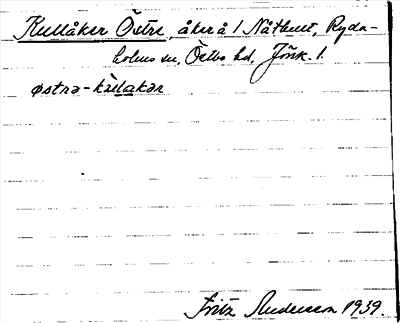 Kullåker Östre, åker å 1 Nåthult, Ryda-
holms sn, Östbo hd, Jönk. l.
østrə-kullakər
Fritz Andersson 1939.